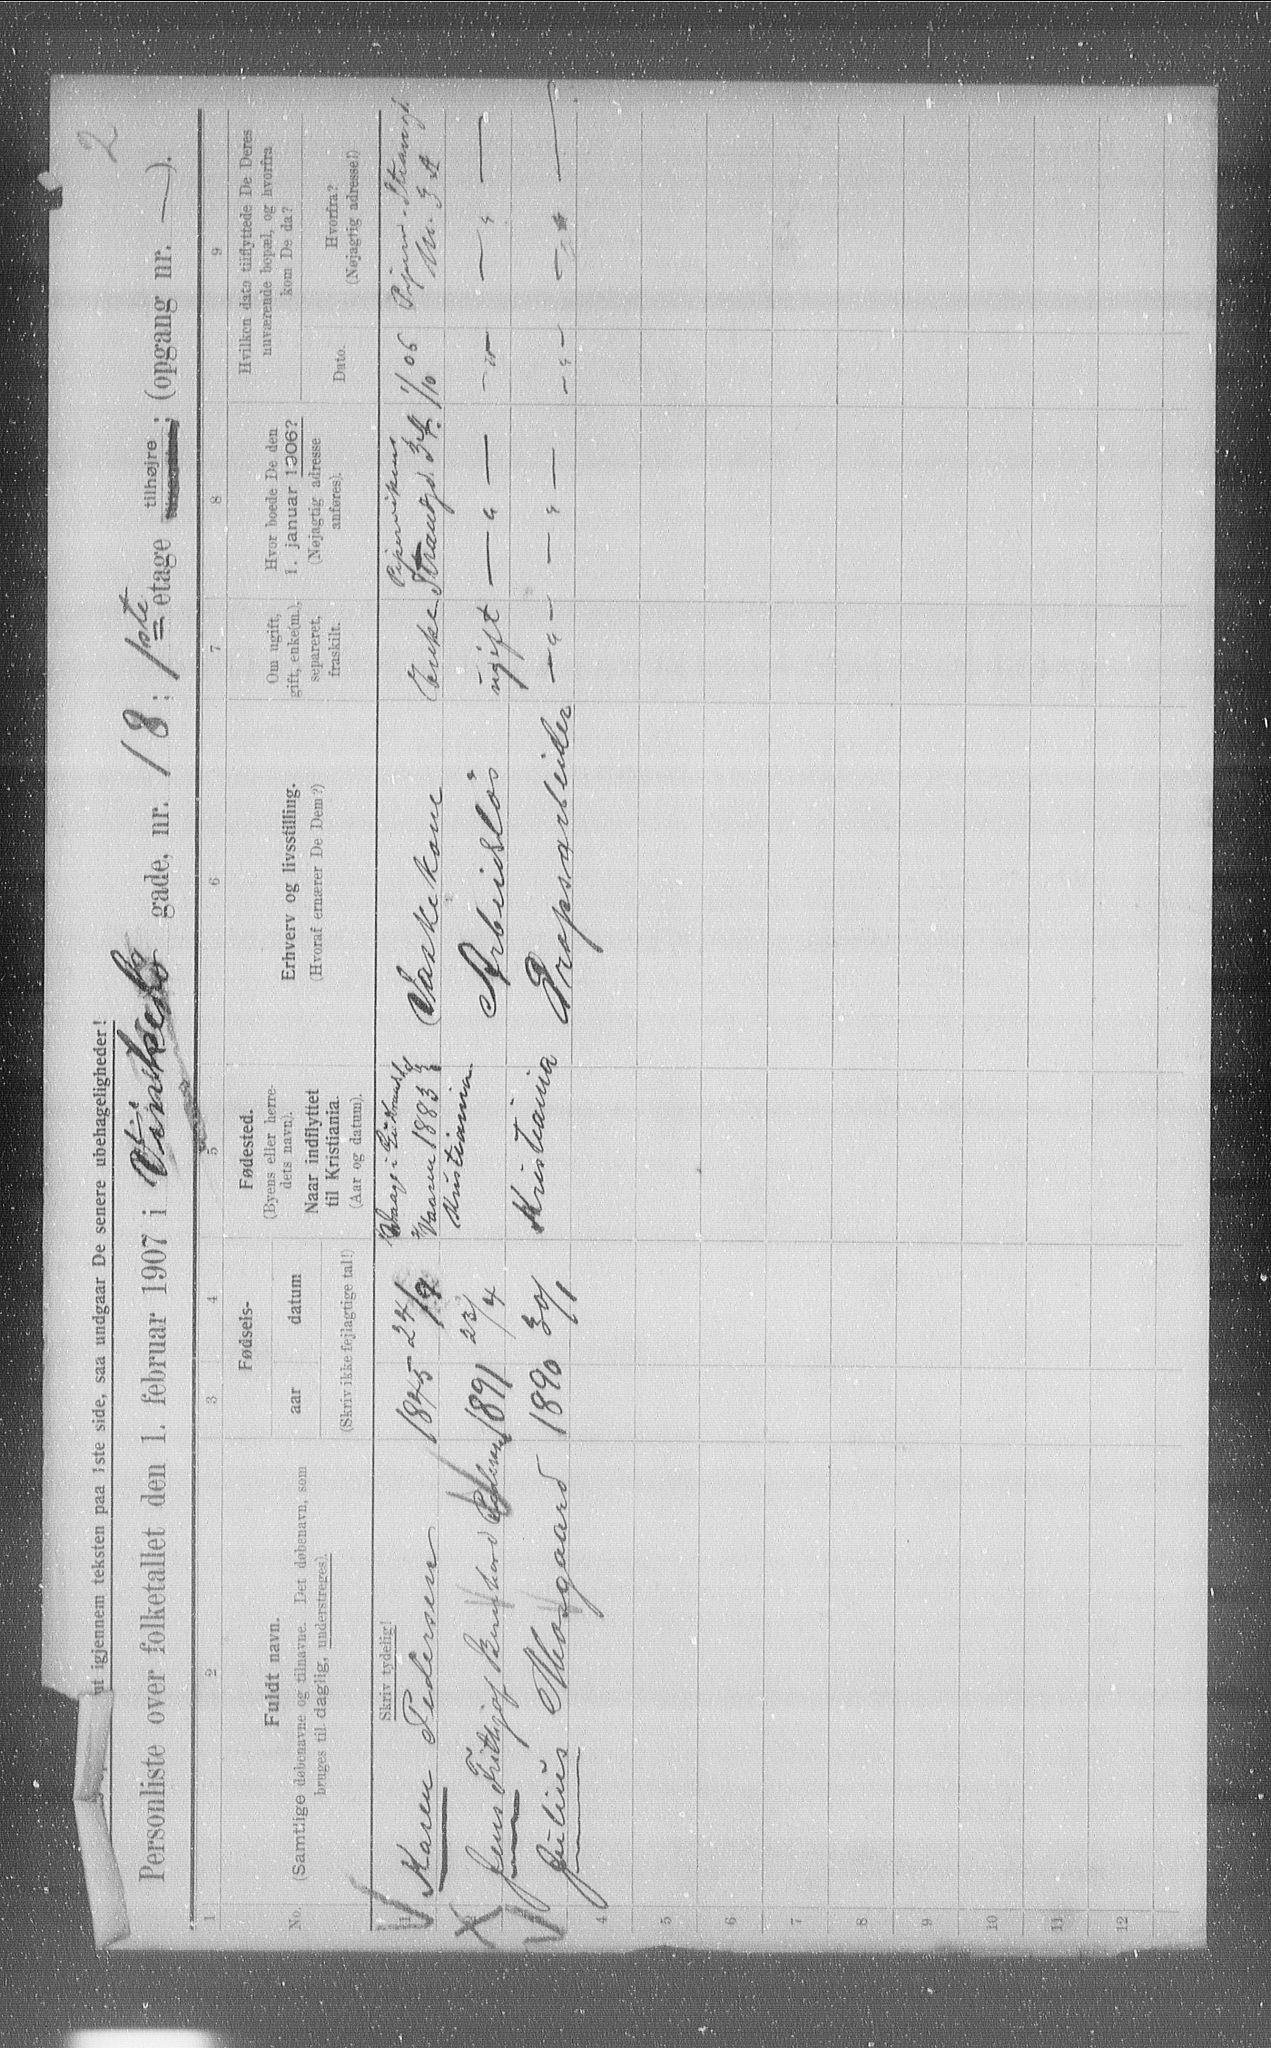 2
ut igjennem teksten paa 1ste side, saa undgaar De senere ubehageligheder!
Personliste over folketallet den 1. februar 1907 i gade, nr. 18; 1ste etage tilhøjre; (opgang nr. —).
1 2 3 4 5 6 7 8 9
No.
Fuldt navn.
(Samtlige døbenavne og tilnavne. Det døbenavn, som
bruges til daglig, understreges).
Fødsels-
aar datum
(Skriv ikke fejlagtige tal!)
Fødested.
(Byens eller herre-
dets navn).
Naar indflyttet
til Kristiania.
(Aar og datum).
Erhverv og livsstilling.
(Hvoraf ernærer De Dem?)
Om ugift,
gift, enke(m.),
separeret,
fraskilt.
Hvor boede De den
1. januar 1906?
(Nøjagtig adresse
anføres).
Hvilken dato tilflyttede De Deres
nuværende bopæl, og hvorfra
kom De da?
Dato.
Hvorfra?
(Nøjagtig adresse!)
Skriv tydelig!
1 Karen Pedersen 1845 24/ Vaaren 1883 Vaskekone Enke Pipervikens Strangd. 1/10 06
2 Jens Frithjof Bernhard Pedersen 1891 23/4 Kristiania Arbeidsløs ugift — " — — " — — " —
3 Julius Mosgaard 1890 30/1 Kristiania Propsarbeider — " — — " — — " — — " —
4
5
6
7
8
9
10
11
12